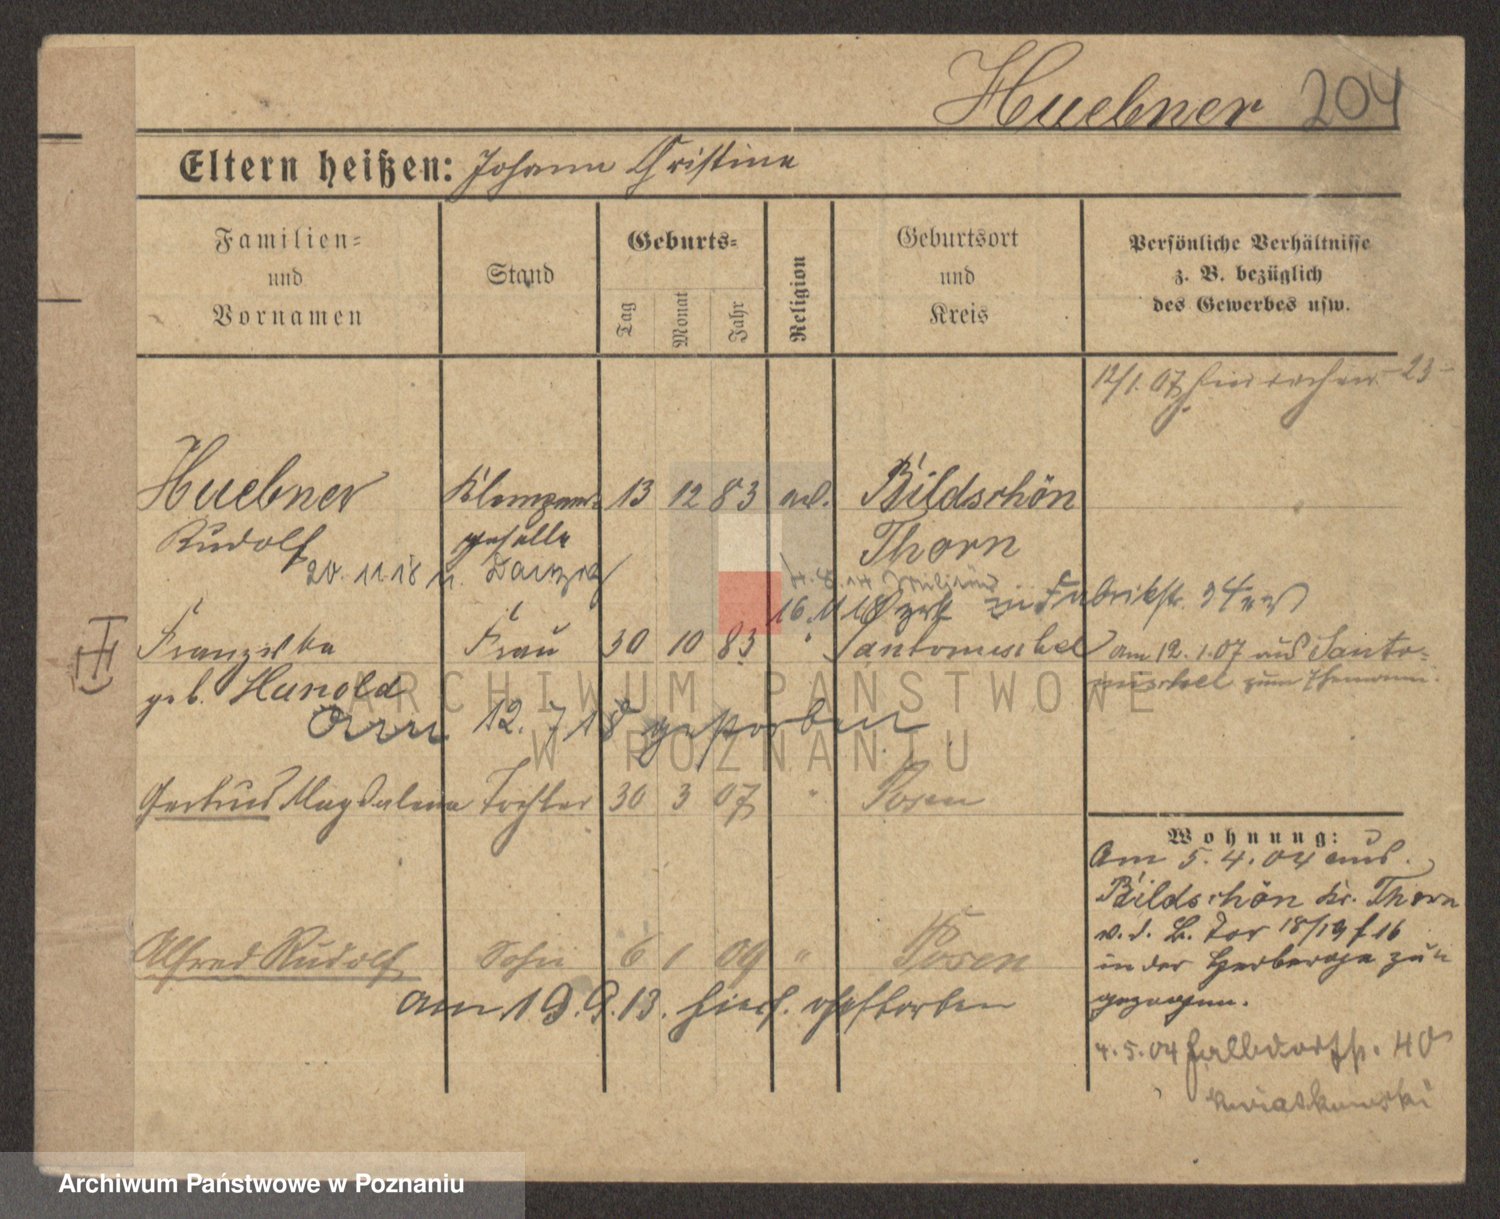 Huebner 204
Eltern heißen: Johann Christine
Familien-
und
Vornamen
Stand
Geburts-
Tag
Monat
Jahr
Religion
Geburtsort
und
Kreis
Persönliche Verhältnisse
z. B. bezüglich
des Gewerbes usw.
12/1. 07 -23-
Huebner Klempner- 13 12 83 Bildschön
Rudolf geselle Thorn
20. 11. 18 n. Danzig
4. 8. 14 Militär
16. 11. 18 zur. in Fabrikstr. 34
Franziska Frau 30 10 83 " Santomischel am 12. 1. 07 aus Santo-
geb. Hunold mischel zum Ehemann.
Am 12. 7 18 gestorben
Gertrud Magdalena Tochter 30 3 07 " Posen
Wohnung:
Am 5. 4. 04 aus
Bildschön Kr. Thorn
v. d. B. Tor 18/19 f 16
in der Herberge zu
gezogen.
Alfred Rudolf Sohn 6 1 09 " Posen
am 19. 9. 13. hier gestorben
4. 5. 04 40
Kwiatkowski
ARCHIWUM PAŃSTWOWE
W POZNANIU
Archiwum Państwowe w Poznaniu